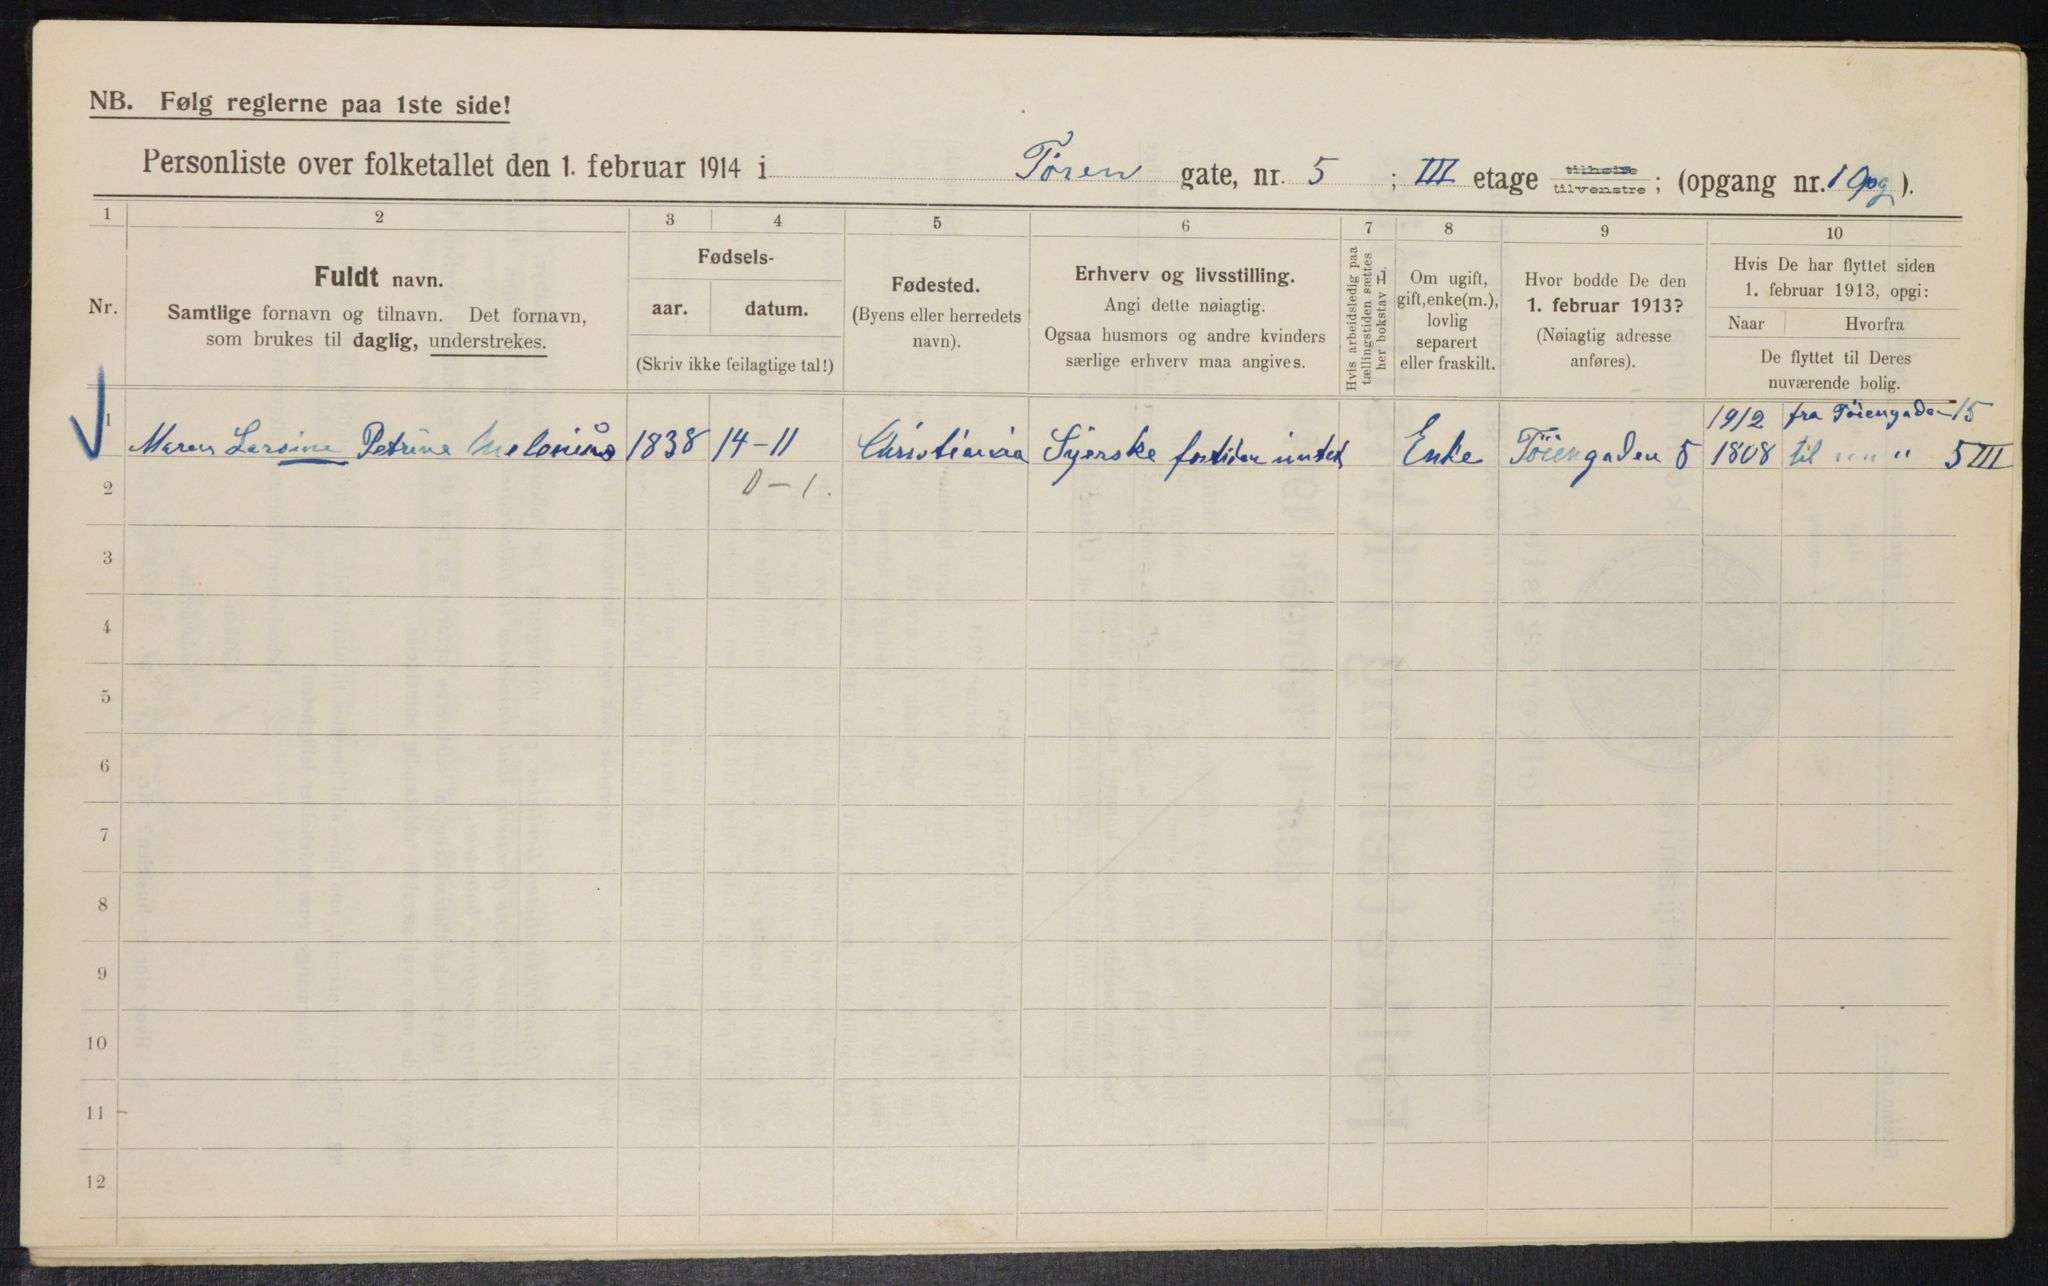 NB. Følg reglerne paa 1ste side!
Personliste over folketallet den 1. februar 1914 i Töien gate, nr. 5 ; III etage tilhøire tilvenstre ; (opgang nr. 1 Opg ).
1 2 3 4 5 6 7 8 9 10
Nr.
Fuldt navn.
Samtlige fornavn og tilnavn. Det fornavn,
som brukes til daglig, understrekes.
Fødsels-
aar. datum.
(Skriv ikke feilagtige tal!)
Fødested.
(Byens eller herredets
navn).
Erhverv og livsstilling.
Angi dette nøiagtig.
Ogsaa husmors og andre kvinders
særlige erhverv maa angives.
Hvis arbeidsledig paa
tællingstiden sættes
her bokstav L
Om ugift,
gift, enke(m.),
lovlig
separert
eller fraskilt.
Hvor bodde De den
1. februar 1913?
(Nøiagtig adresse
anføres).
Hvis De har flyttet siden
1. februar 1913, opgi:
Naar Hvorfra
De flyttet til Deres
nuværende bolig.
1912 fra Töiengaden 15
1 Maren Larsine Petrine 1838 14-11 Christiania Syerske fortiden intet Enke Töiengaden 5 1808 til " " " 5 III
2 0-1.
3
4
5
6
7
8
9
10
11
12